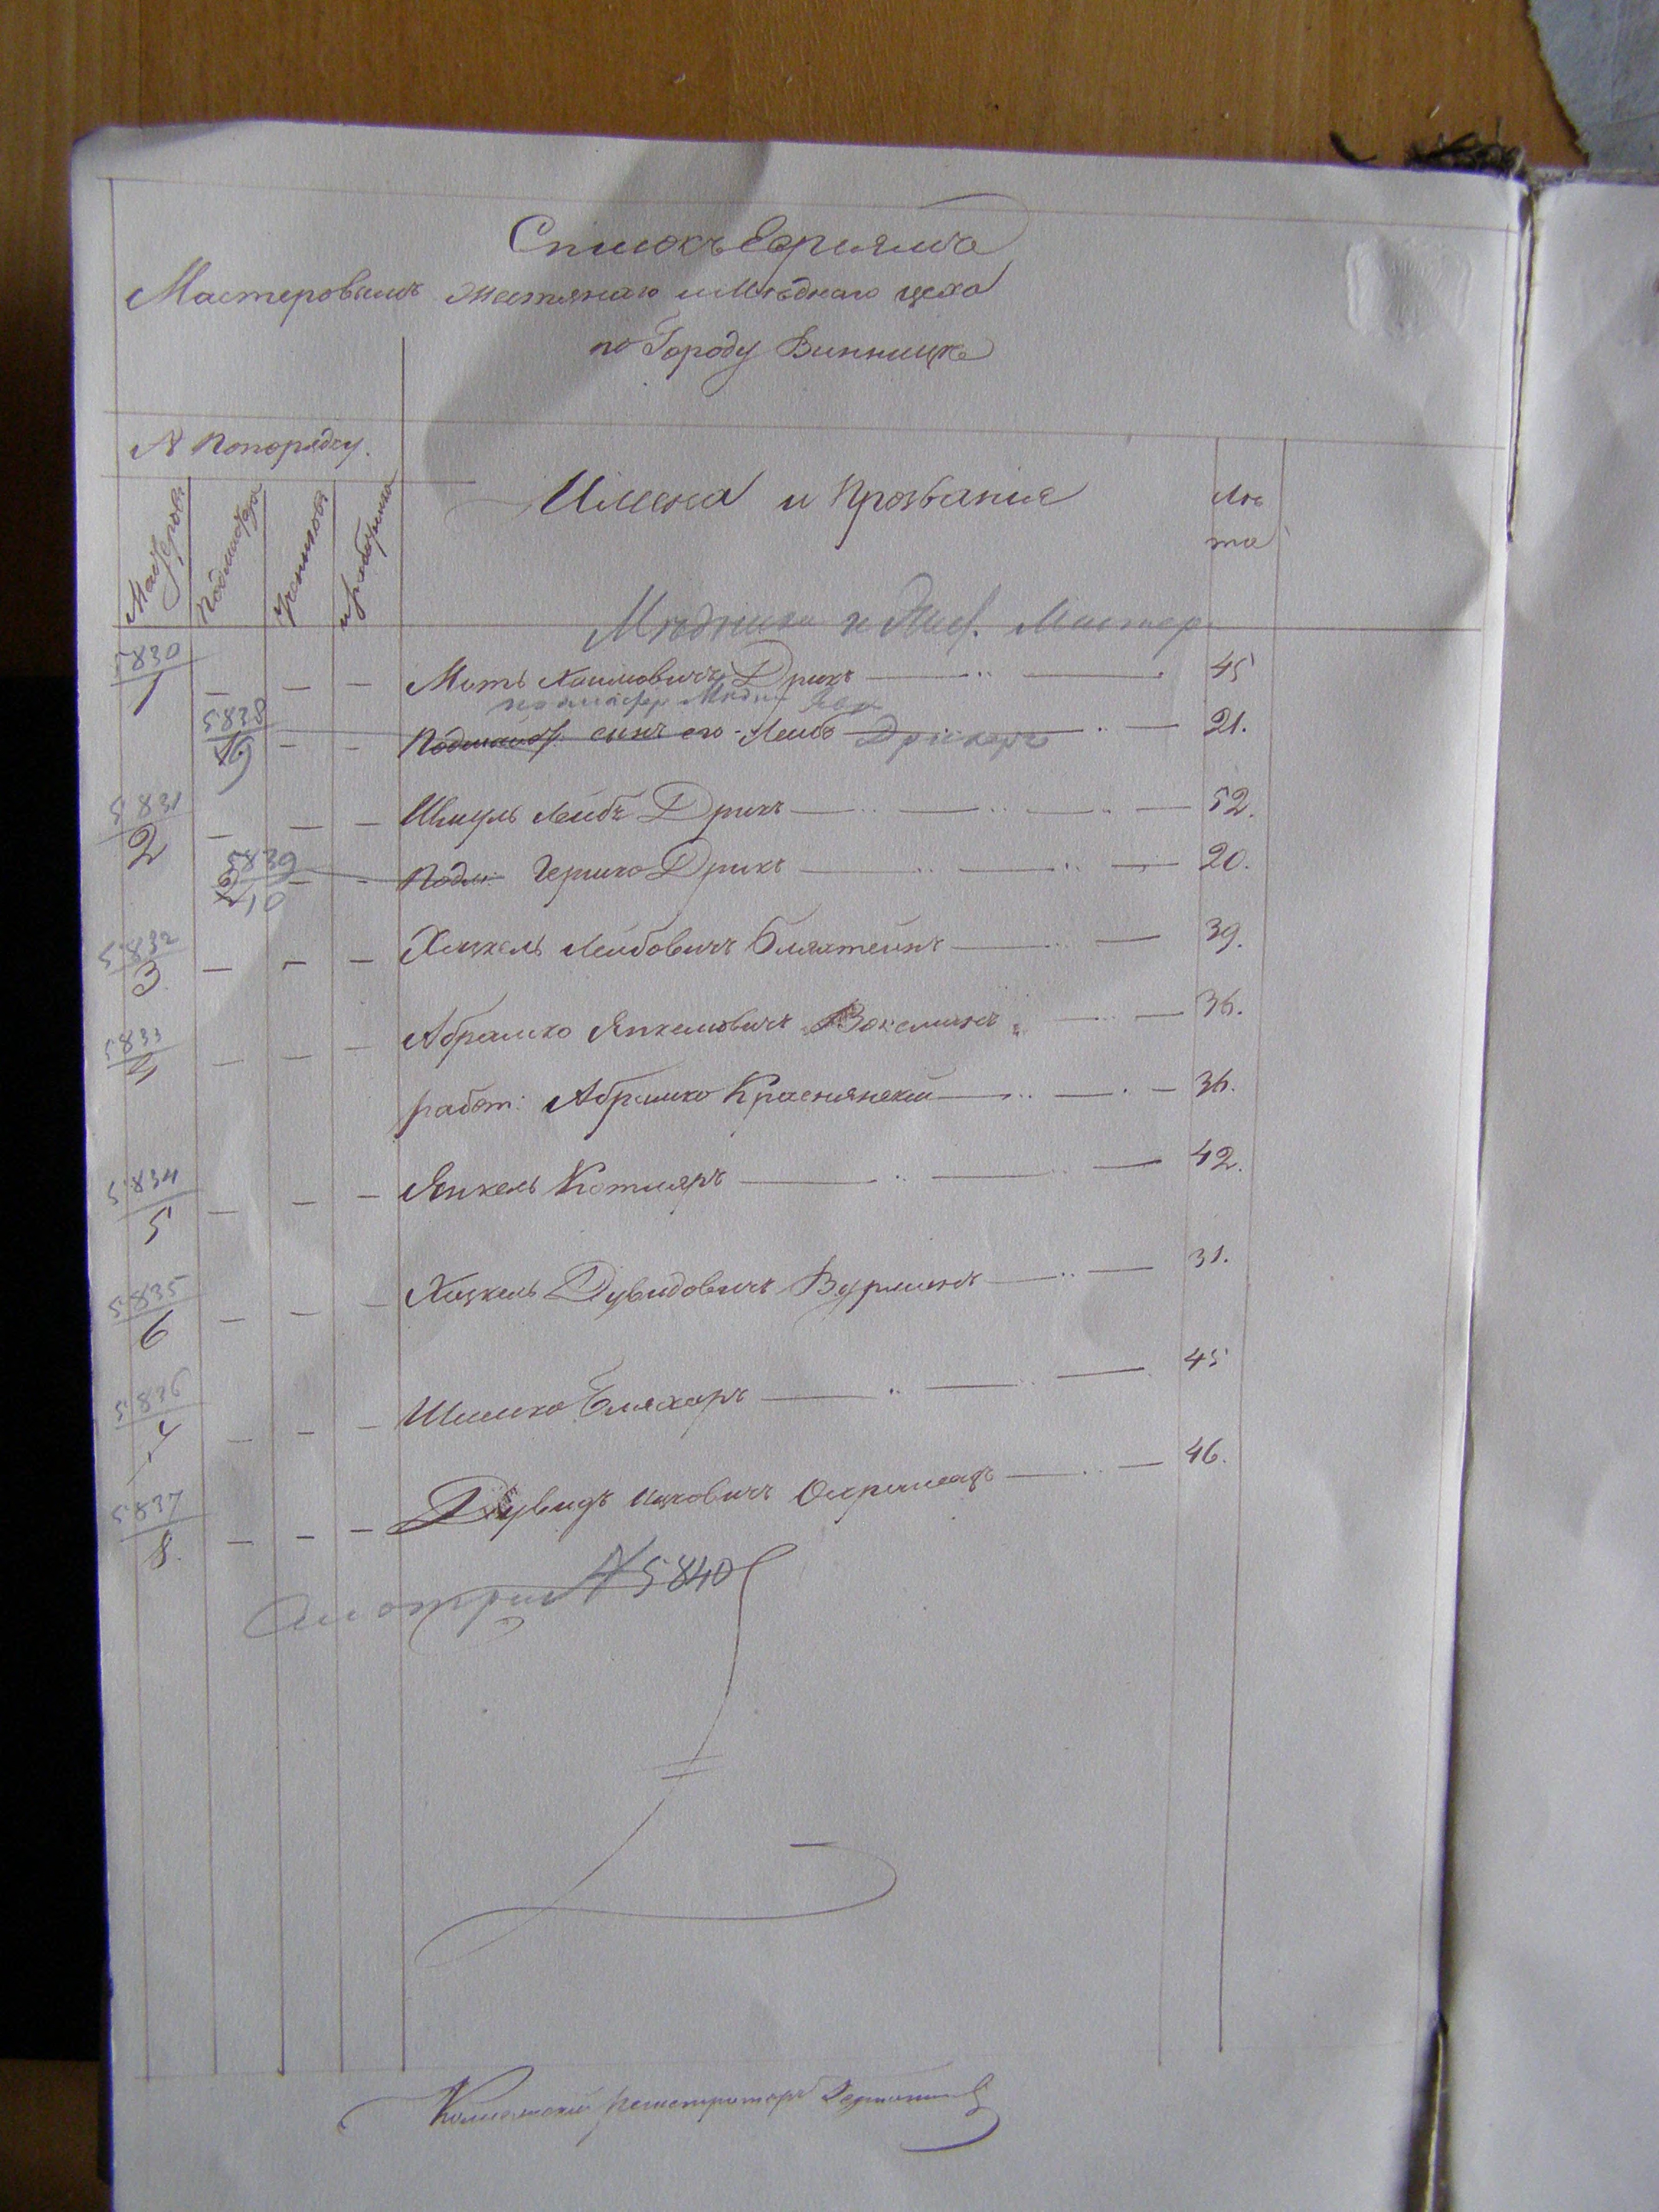 Списокъ Евреямъ
Мастеровымъ Жестянаго и Мѣднаго цеха
по Городу Винницѣ
№ По порядку.
Мастеровъ
Подмастера
Учениковъ
Имена и Прозвания
Лѣ
та
Мѣдники и Мастер
5830
1 — — — Мать Хаимовичъ Дрикъ — 45
5838
9 — — Подмаст. сынъ его Лейба Дрикеръ — 21.
5831
2 — — — Шмуль Лейбъ Дрикъ — 52.
5839
10 — — Подм: Гершко Дрикъ — 20.
5832
3 — — — Хацкель Лейбовичъ — 39.
5833
4 — — — Абрамко Янкелевичъ — 36.
работ: Абрамко Краснянский — 36.
5834
5 — — — Янкель Котляръ — 42.
5835
6 — — — Хацкель Дувидовичъ Вурманъ — 31.
5836
7 — — — Шимко Бляхеръ — 45
5837
8. — — — Дувидъ Ицковичъ — 46.
Смотри № 5840
Коллежский Регистраторъ